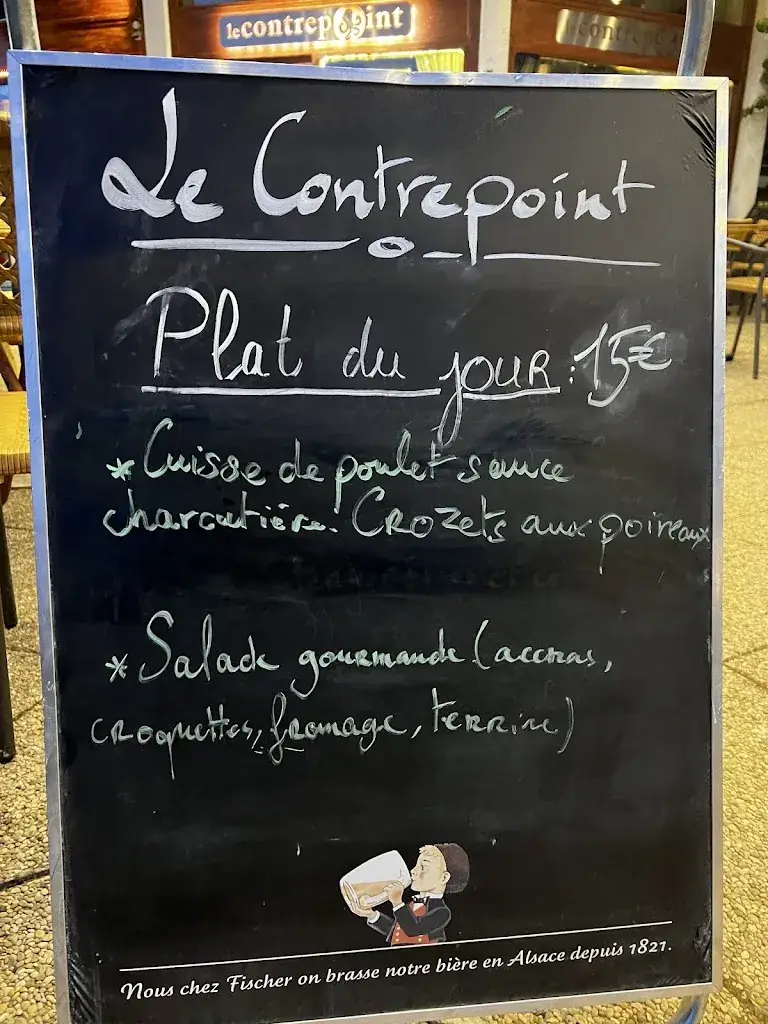 le contrepoint
le contrepoint
Le Contrepoint
Plat du jour : 15€
* Cuisse de poulet sauce
charcutière. Crozets aux poireaux
* Salade gourmande (accras,
croquettes, fromage, terrine)
Nous chez Fischer on brasse notre bière en Alsace depuis 1821.